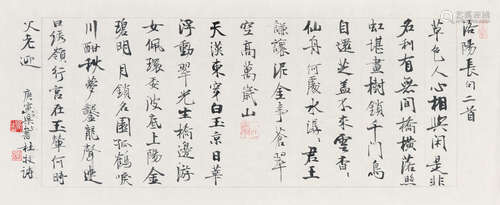 洛陽長句二首
草色人心相與閑是非
名利有無間橋橫落照
虹堪畫樹鎖千門鳥
自還芝盖不来雲杳々
仙舟何處水潺々君王
謙讓泥金事蒼翠
空高萬歲山
天漢東穿白玉京日華
浮動翠光生橋邊游
女佩環委波底上陽金
碧明月鎖名園孤鶴唳
川酣秋夢鑿龍聲連
昌綉嶺行宮在玉輦何時
父老迎
庚寅 書杜牧詩